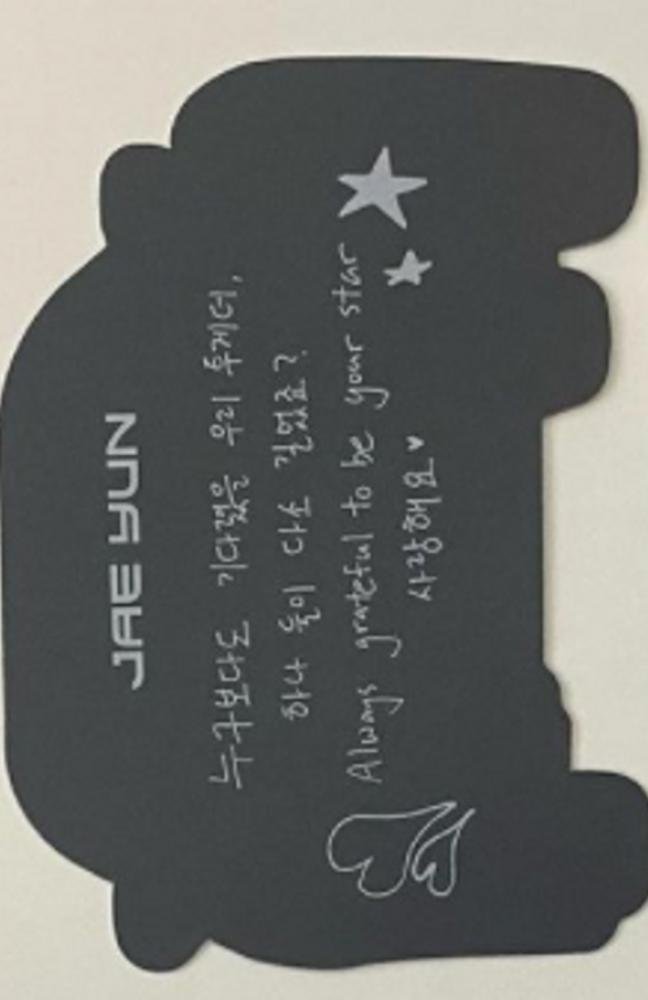 JAE YUN
누구보다도 기다렸을 우리 후게더,
하나 둘이 다소 길었죠?
Always grateful to be your star
사랑해요♥